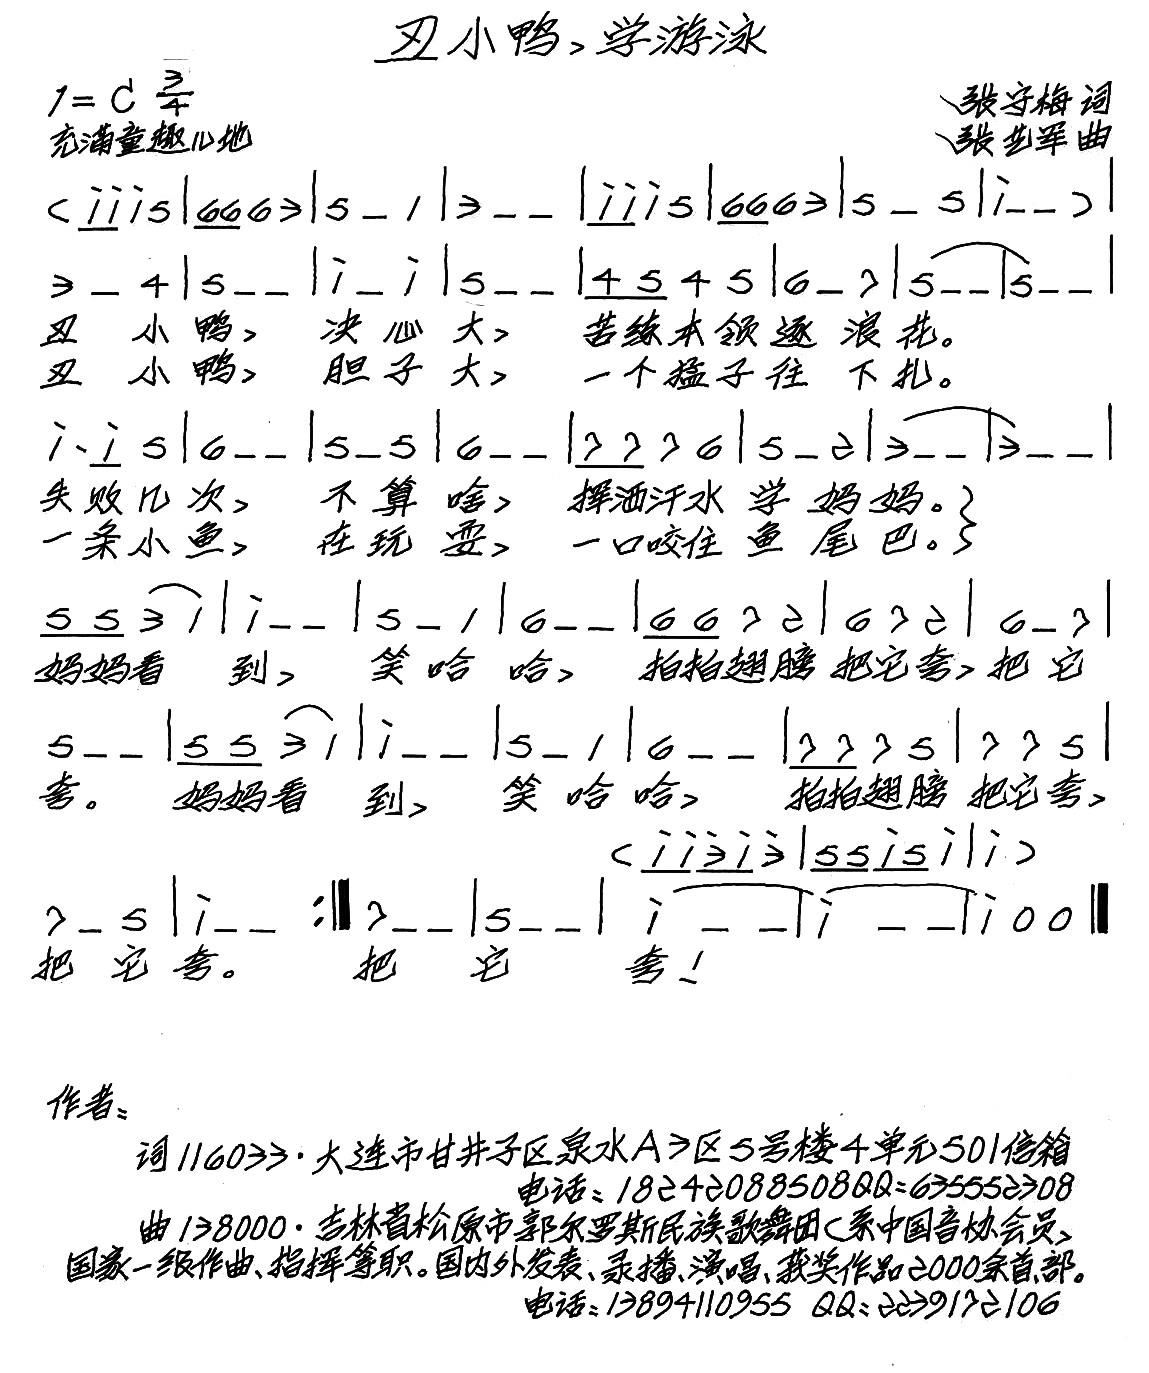 丑小鸭,学游泳
1=C 3/4
充满童趣儿地
张守梅 词
张艺军 曲
(i i i 5|6 6 6 3|5 _ 1|3 _ _|i i i 5|6 6 6 3|5 _ 5|i _ _)|
3 _ 4|5 _ _|i _ i|5 _ _|4 5 4 5|6 _ 7|5 _ _|5 _ _|
丑 小鸭, 决心大, 苦练本领逐浪花。
丑 小鸭, 胆子大, 一个猛子往下扎。
i· i 5|6 _ _|5 _ 5|6 _ _|7 7 7 6|5 _ 2|3 _ _|3 _ _|
失败几次, 不算啥, 挥洒汗水学妈妈。}
一条小鱼, 在玩耍, 一口咬住鱼尾巴。}
5 5 3 1|i _ _|5 _ 1|6 _ _|6 6 7 2|6 7 2|6 _ 7|
妈妈看 到, 笑哈哈, 拍拍翅膀把它夸,把它
5 _ _|5 5 3 1|i _ _|5 _ 1|6 _ _|7 7 7 5|7 7 5|
夸。 妈妈看 到, 笑哈哈, 拍拍翅膀把它夸,
(i i 3 i 3|5 5 i 5 i|i)
7 _ 5|i _ _:‖7 _ _|5 _ _|i _ _|i _ _|i 0 0‖
把它夸。 把 它 夸!
作者:
词116033·大连市甘井子区泉水A3区5号楼4单元501信箱
电话:18242088508QQ:635552308
曲138000·吉林省松原市郭尔罗斯民族歌舞团(系中国音协会员,
国家一级作曲、指挥等职。国内外发表、录播、演唱、获奖作品2000余首、部。
电话:13894110955 QQ:2239172106